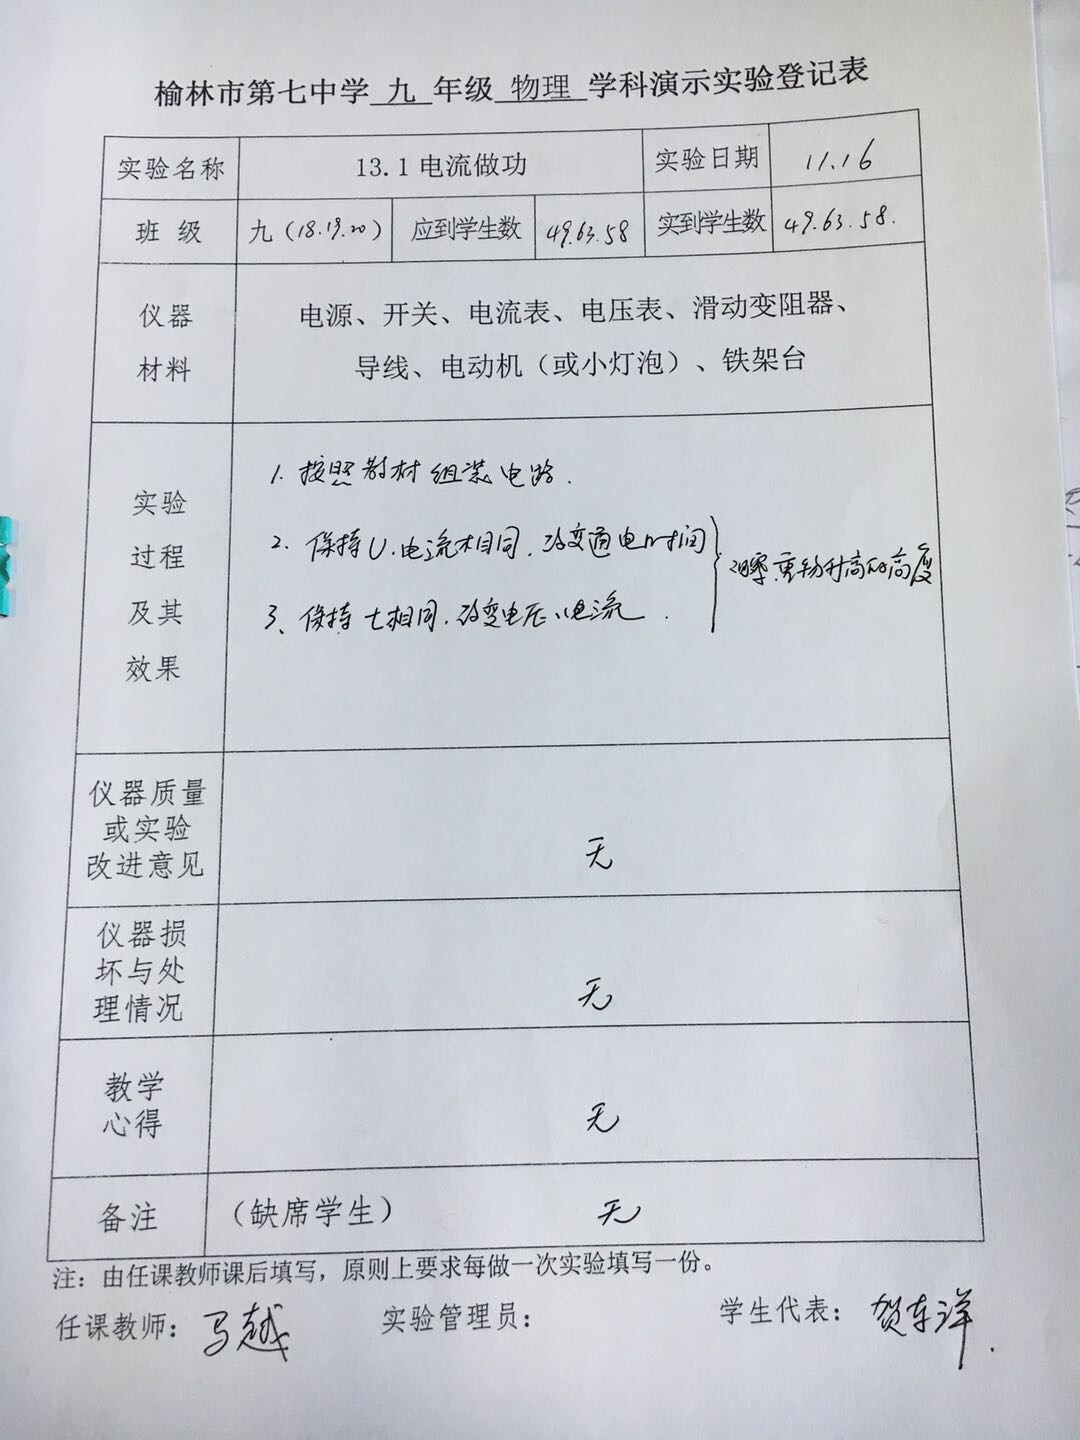 榆林市第七中学 九 年级 物理 学科演示实验登记表
实验名称 13.1电流做功 实验日期 11.16
班 级 九（18.19.20） 应到学生数 49.63.58 实到学生数 49.63.58.
仪器
材料
电源、开关、电流表、电压表、滑动变阻器、
导线、电动机（或小灯泡）、铁架台
实验
过程
及其
效果
1. 按照教材组装电路.
2. 保持U、电流相同，改变通电时间
3、保持t相同，改变电压、电流.
观察重物升高的高度
仪器质量
或实验
改进意见
无
仪器损
坏与处
理情况
无
教学
心得
无
备注 （缺席学生） 无
注：由任课教师课后填写，原则上要求每做一次实验填写一份。
任课教师：马越 实验管理员： 学生代表：贺东洋.